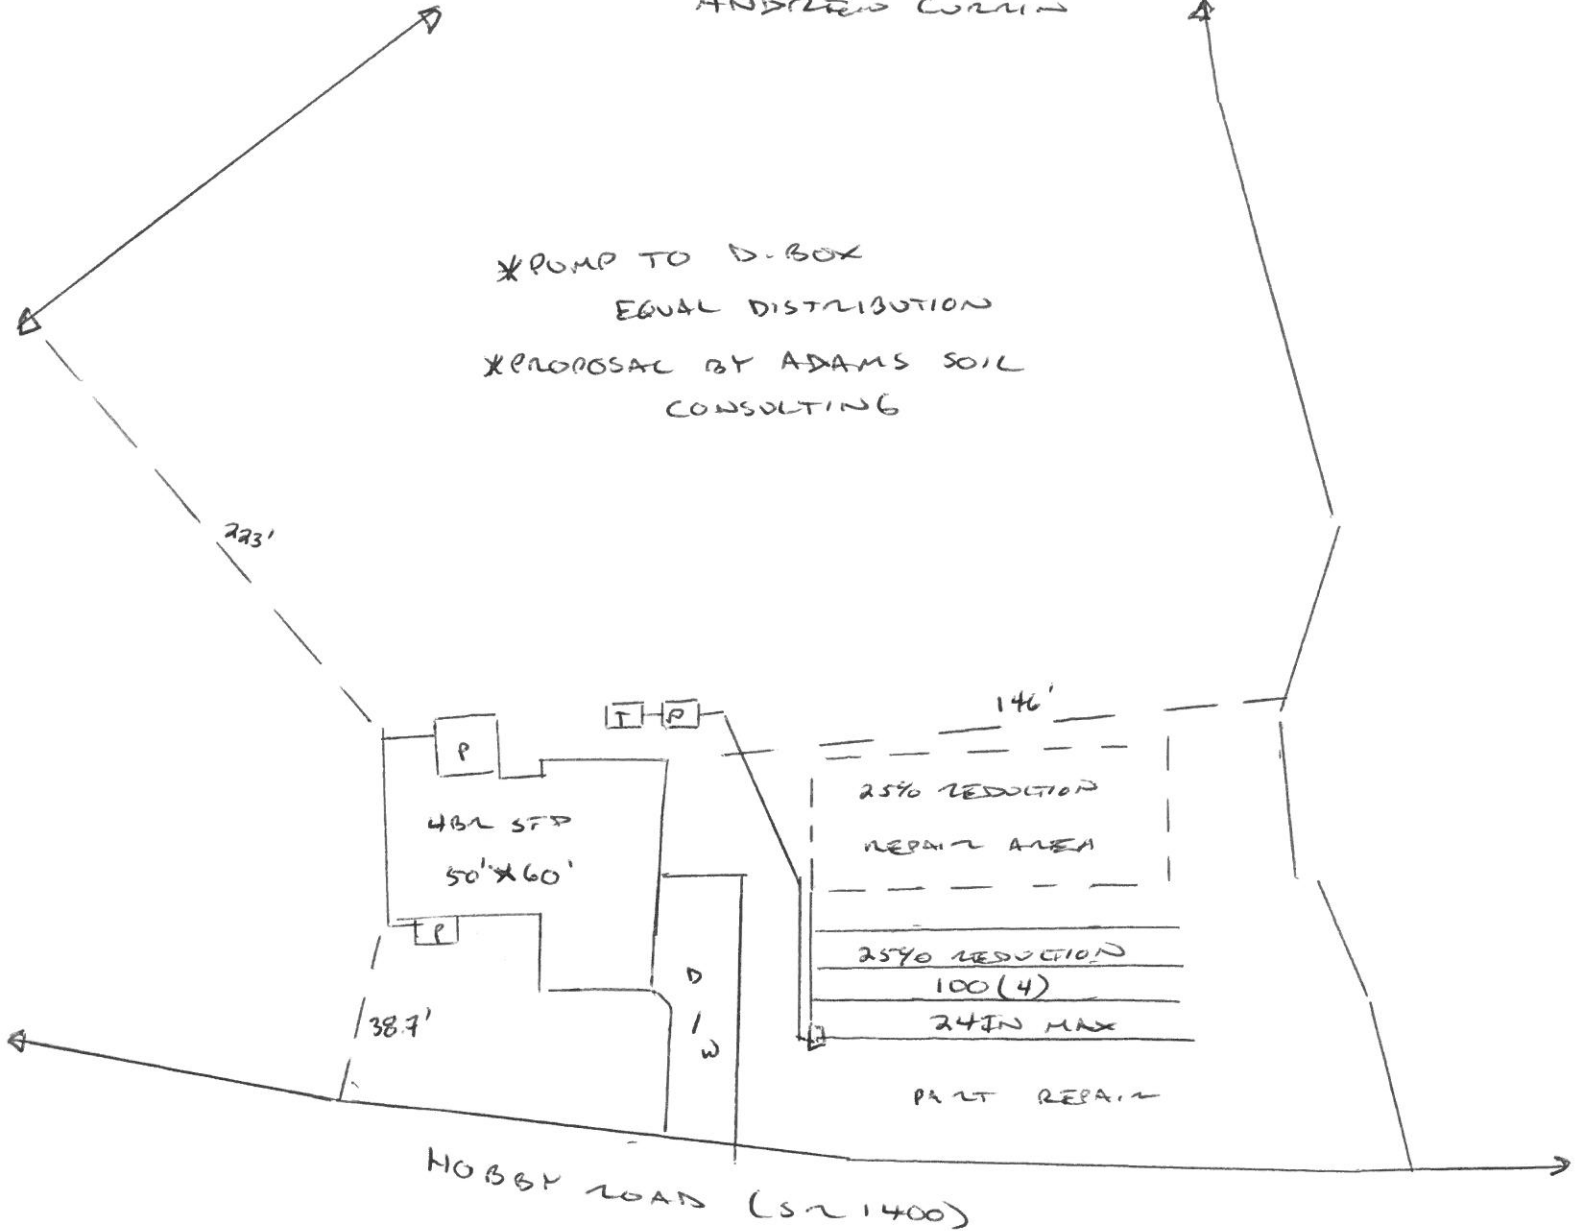 ANDREW CURRIN
*PUMP TO D-BOX
EQUAL DISTRIBUTION
*PROPOSAL BY ADAMS SOIL
CONSULTING
223'
146'
T P
P
25% REDUCTION
REPAIR AREA
4BR SFD
50'X60'
P
25% REDUCTION
100(4)
24IN MAX
D/W
38.7'
PART REPAIR
HOBBY ROAD (SR 1400)